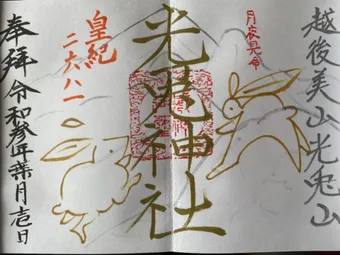 越後美山光兎山
月夜見命
光兎神社
皇紀
二六八一
奉拝 令和参年葉月壱日